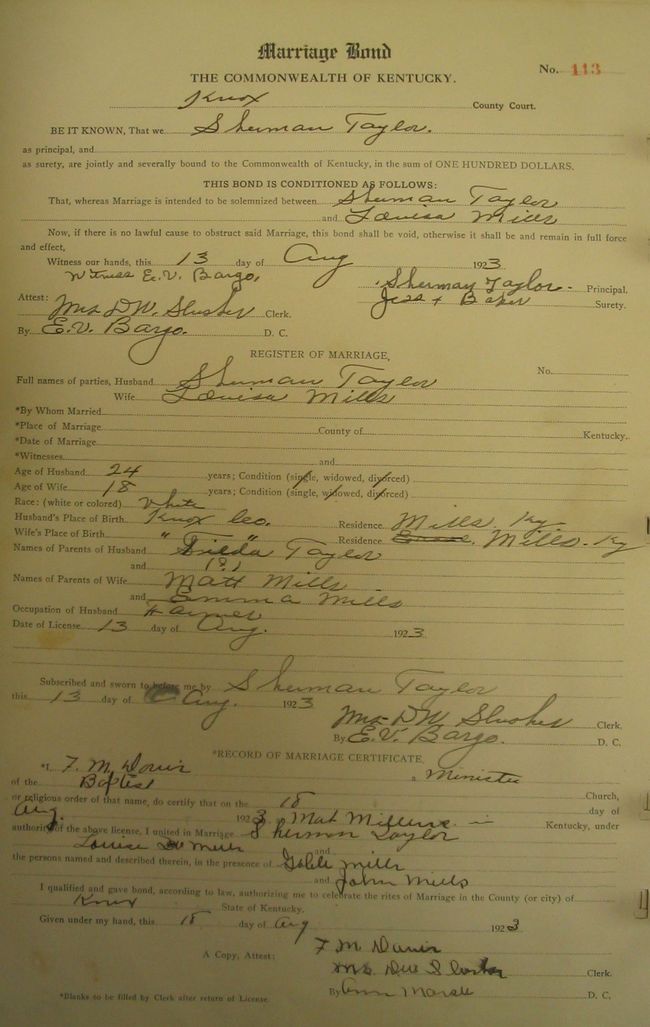 Marriage Bond
No. 113
THE COMMONWEALTH OF KENTUCKY.
Knox County Court.
BE IT KNOWN, That we Sherman Taylor.
as principal, and
as surety, are jointly and severally bound to the Commonwealth of Kentucky, in the sum of ONE HUNDRED DOLLARS.
THIS BOND IS CONDITIONED AS FOLLOWS:
That, whereas Marriage is intended to be solemnized between Sherman Taylor
and Louisa Mills
Now, if there is no lawful cause to obstruct said Marriage, this bond shall be void, otherwise it shall be and remain in full force
and effect,
Witness our hands, this 13 day of Aug 1923
Witness E. V. Bargo, Sherman Taylor Principal.
Attest: Jess Baker Surety.
Mrs D. W. Slusher Clerk.
By E. V. Bargo. D. C.
REGISTER OF MARRIAGE,
No.
Full names of parties, Husband Sherman Taylor
Wife Louisa Mills
*By Whom Married
*Place of Marriage County of Kentucky.
*Date of Marriage
*Witnesses and
Age of Husband 24 years; Condition (single, widowed, divorced)
Age of Wife 18 years; Condition (single, widowed, divorced)
Race: (white or colored) White
Husband's Place of Birth Knox Co. Residence Mills. Ky-
Wife's Place of Birth " " Residence Mills. Ky
Names of Parents of Husband Taylor
and (?)
Names of Parents of Wife Matt Mills
and Emma Mills
Occupation of Husband Farmer
Date of License 13 day of Aug. 1923
Subscribed and sworn to before me by Sherman Taylor
this 13 day of Aug. 1923
Mrs D W Slusher Clerk.
By E. V. Bargo. D. C.
*RECORD OF MARRIAGE CERTIFICATE,
*I, F. M. Davis a Minister
of the Baptest Church,
or religious order of that name, do certify that on the 18 day of
Aug. 1923 Mat in Kentucky, under
authority of the above license, I united in Marriage Sherman Taylor
and
the persons named and described therein, in the presence of Mills
and John Mills
I qualified and gave bond, according to law, authorizing me to celebrate the rites of Marriage in the County (or city) of
Knox State of Kentucky.
Given under my hand, this 18 day of Aug 1923
F M Davis
A Copy, Attest: Mrs DW Slusher Clerk.
By D. C.
*Blanks to be filled by Clerk after return of License.